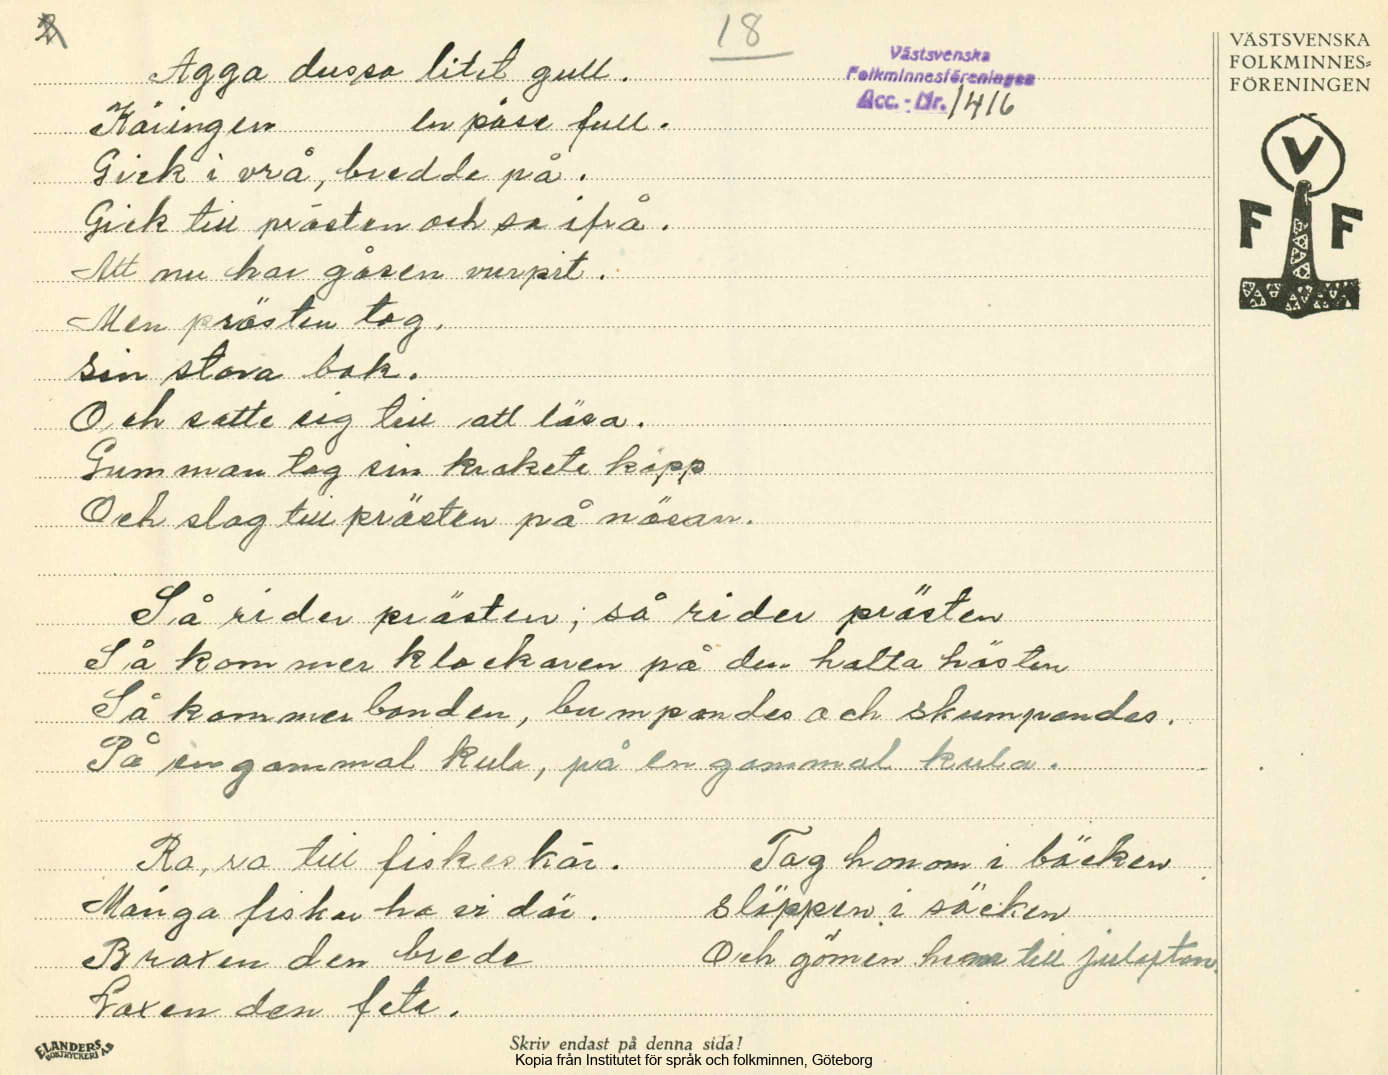 18
Västsvenska
Folkminnesföreningen
Acc. - Nr. 1416
VÄSTSVENSKA
FOLKMINNES=
FÖRENINGEN
V
F F
Agga dussa litet gull.
Käringen en påse full.
Gick i vrå, bredde på.
Gick till prästen och sa ifrå.
Att nu har gåsen vurpit.
Men prästen tog.
Sin stora bok.
Och satte sig till att läsa.
Gumman tog sin krokete käpp
Och slog till prästen på näsan.
Så rider prästen; så rider prästen
Så kommer klockaren på den halta hästen
Så kommer bonden, bumpandes och skumpandes.
På en gammal kula, på en gammal kula.
Ro, ro till fiskeskär.
Många fiskar ha vi där.
Braxen den brede
Laxen den fete.
Tag honom i bäcken
släppen i säcken
Och gömen till julafton.
ELANDERS
BOKTRYCKERI AB
Skriv endast på denna sida!
Kopia från Institutet för språk och folkminnen, Göteborg